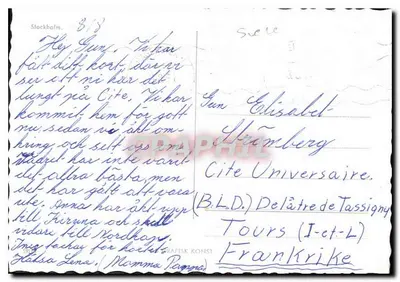 Stockholm. 8/8
Hej Gun. Vi har
fått ditt kort, där vi
ser att ni har det
lungt på Cite. Vi har
kommit hem för gott
nu, sedan vi åkt om-
kring och sett oss om.
Vädret har inte varit
det allra bästa, men
det har gått att vara
ute. Anna har åkt upp
till Kiruna och skall
vidare till Nordkap.
Inga tackar för kortet.
Hälsa Lena. (Mamma Pappa)
Gun Elisabet
Strömberg
Cite Universaire.
(B.L.D.) De Lâtre de Tassigny
Tours (I-et-L)
Frankrike